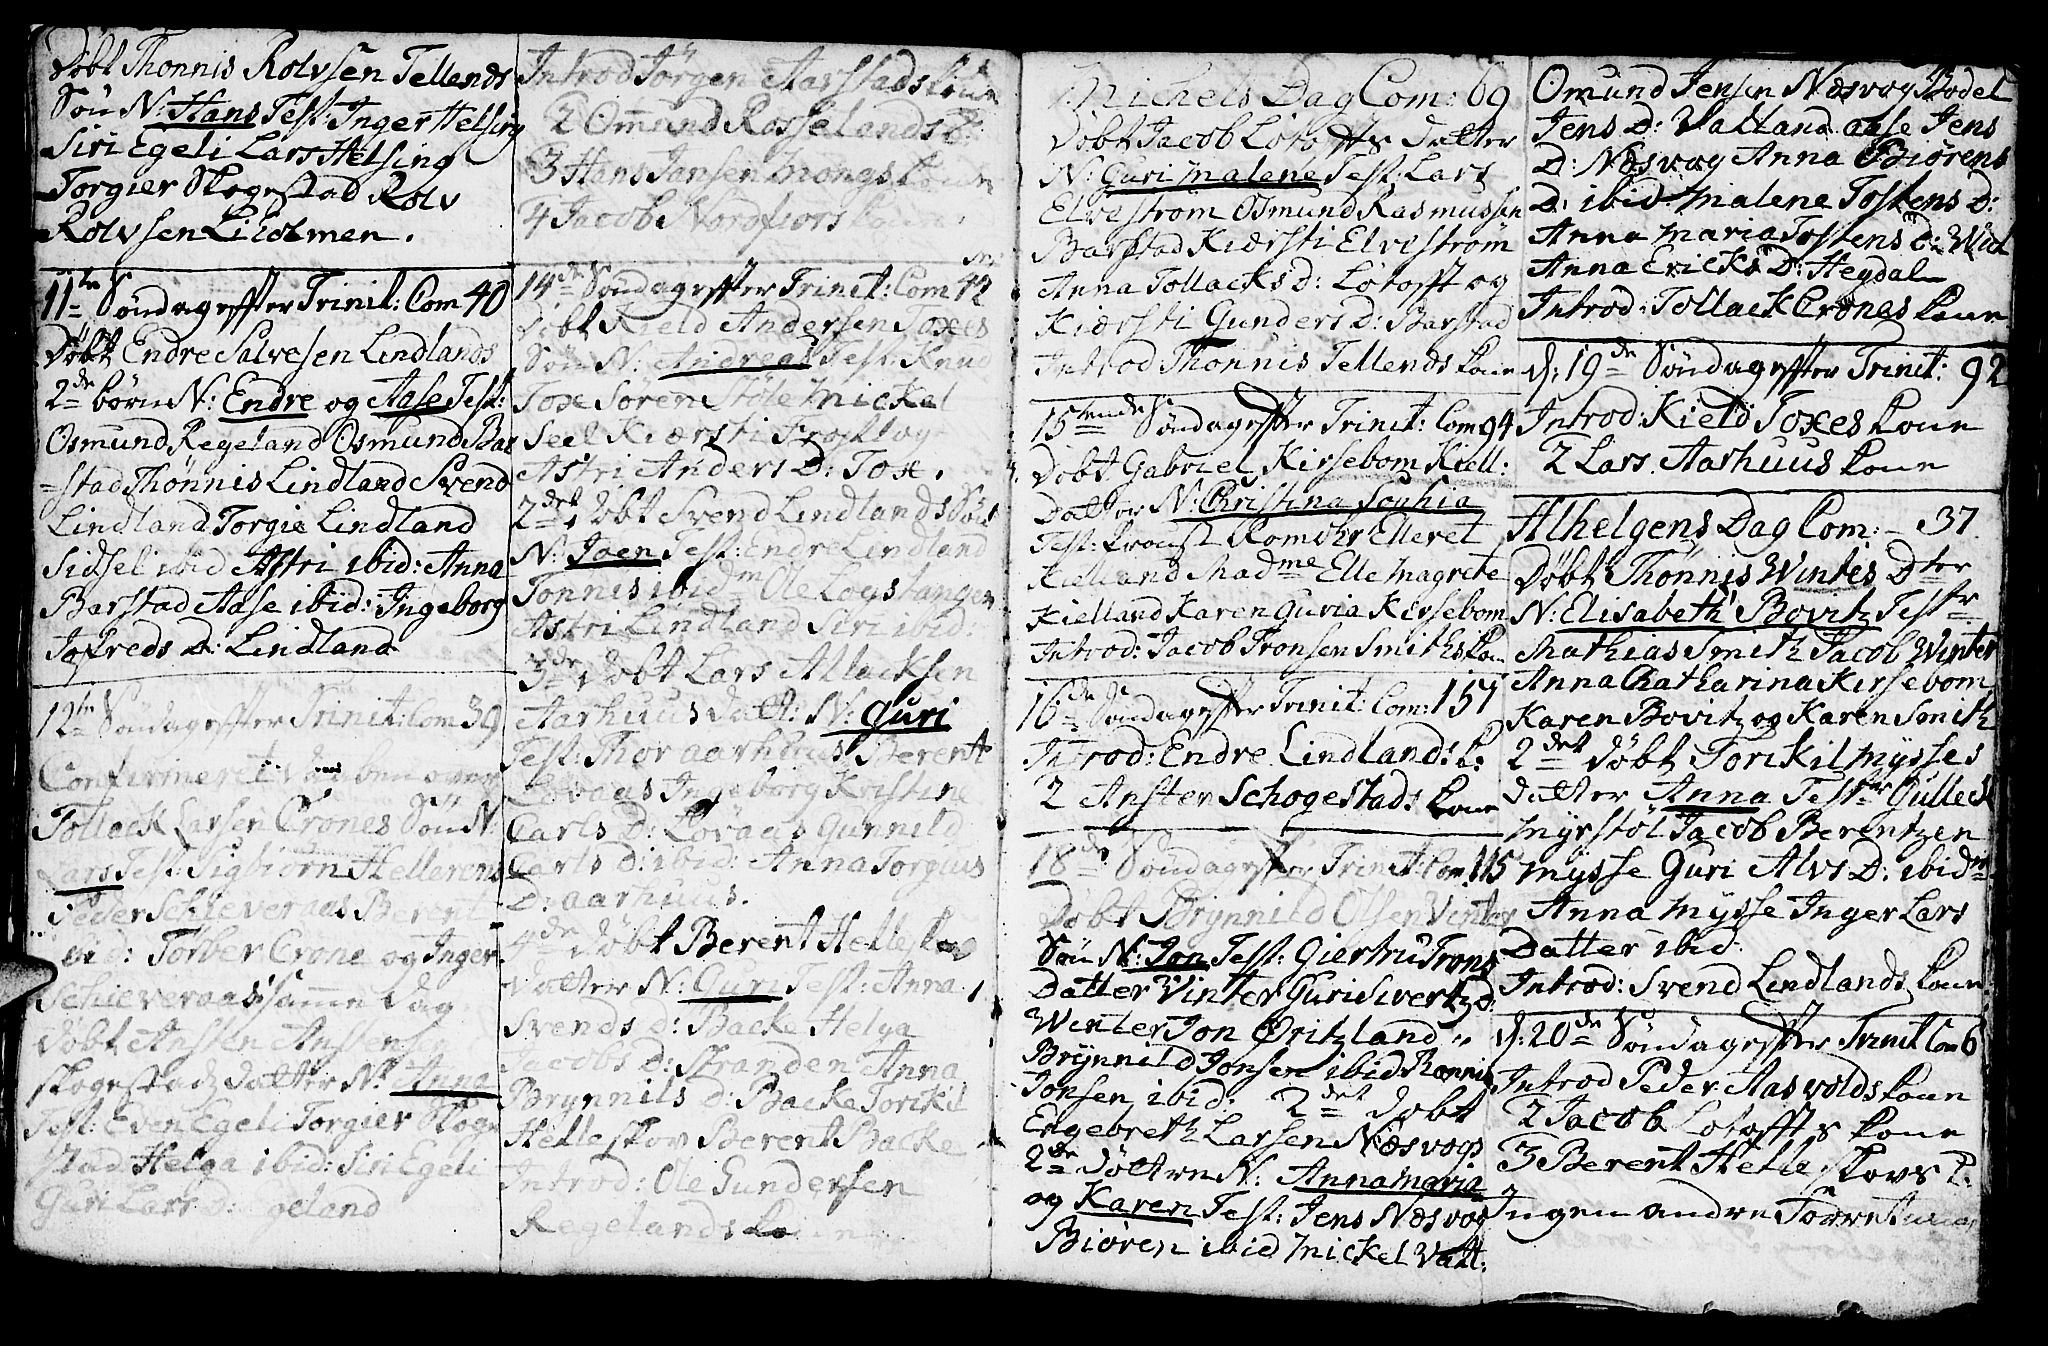 Døbt Thonnis Rolvsen Tellands
Søn N: Hans Test: Inger Helsing
Siri Egeli Lars Helsing
Torgier Skogestad Rolv
Rolvsen Liholmen.
11te Søndag effter Trinit: Com 40
Døbt Endre Salvesen Lindlands
2de børn N: Endre og Aase Test:
Osmund Regeland Osmund Bar
=stad Thönnis Lindland Svend
Lindland Torgie Lindland
Sidsel ibid Astri ibid: Anna
Barstad Aase ibid: Ingeborg
Jofreds D: Lindland
12te Søndag effter Trinit: Com 39
Confirmeret
Tollack Larsen Crones Søn N.
Lars Test: Sigbiørn Hellerens
Peder Schieveraas Berent
ibid: Torber Crone og Inger
Schieveraas samme Dag
Døbt Ansten Anstens
Skogestads datter N. Anna
Test: Even Egeli Torgier Skoge
stad Helga ibid: Siri Egeli
Guri Lars D: geland
Introd Jörgen Aarstads kone
2 Omund Rosselands k:
3 Hans Jansen Mongs kone
4 Jacob Nordfiors kone
14de Søndag effter Trinit: Com 42
Døbt Kield Andersen Toxes
Søn N: Andreas Test: Knud
Toxe Søren Støle Mickel
Seel Kiersti Frostog
Astri Anders D: Toxe.
2det Døbt Svend Lindlands Søn
N: Joen Test: Endre Lindland
Tonnis ibidm Ole Logstangen
Astri Lindland Siri ibid.
3de Døbt Lars Allacksen
Aarhuus Datt: N: Guri
Test: Thor aarhuus Berent
Lovaas Ingeborg Kristine
Carls D: Lovaas Gunnild
Carls D: ibid: Anna Torgius
D: aarhuus.
4de Døbt Berent Helleskov
Datter N: Guri Test: Anna
Svends D: Backe Helga
Jacobs D: Stranden Anna
Brynnils D: Backe Torikil
Helleskov Berent Backe
Introd: Ole Gundersen
Regelands kone
Michels Dag Com: 69
Døbt Jacob Lotoffts Datter
N: Guri Malene Test: Lars
Elvestrøm Osmund Rasmussen
Barstad Kiersti Elvestrøm
Anna Tollacks D: Lotofft og
Kiersti Gunders D: Barstad
Introd Thonnis Tellends kone
15tende Søndag effter Trinit: Com 94
Døbt Gabriel Kirsebom Kiell:
Datter N: Christina Sophia
Test: Provst Romohr Elleret
Kielland Madme Elle Magrete
Kielland Karen Guria Kirsebom
Introd: Jacob Tronsen Smiths kone
16de Søndag effter Trinit: Com: 151
Introd: Endre Lindlands k:
2 Ansten Schogestads kone
18de Søndag effter Trinit: Com 115
Døbt Brynnild Olsen Vinter
Søn N: Jon Test: Giertru Trons
Datter Vinter Guri Sivertz D:
Winter Jon Øritzland
Brynnild Jonsen ibid Thonnis
Jonsen ibid: 2det Døbt
Engebreth Larsen Næsvogs
2de Døttre N: Anna Maria
og Karen Test: Jens Næsvog
Biören ibid Mickel Vatl:
Omund Jensen Næsvog Bodel
Jens D: Vatland aase Jens
D: Næsvog Anna Biörens
D: ibid Malene Tostens D:
Anna Maria Tostens D:
Anna Ericks D: Heydal
Introd: Tollack Crones kone
d: 19de Søndag effter Trinit: 92
Introd: Kield Toxes kone
2 Lars Aarhuus kone
Alhelgens Dag Com: - 37
Døbt Thönnis Wintes Dter
N: Elisabeth Bovitz Testr
Mathias Smith Jacob Winter
Anna Chatharina Kirsebom
Karen Bovitz og Karen Smith
2det Døbt Torikil Mysses
Datter Anna Testr Gulleck
Myrstöl Jacob Berentzen
Mysse Guri Alvs D: ibidm
Anna Mysse Inger Lars
Datter ibid:
Introd: Svend Lindlands kone
d: 20de Søndag effter Trinit Com 6
Introd Peder Aasvolds kone
2 Jacob Lotoffts kone
3 Berent Helleskovs k:
Ingen andre